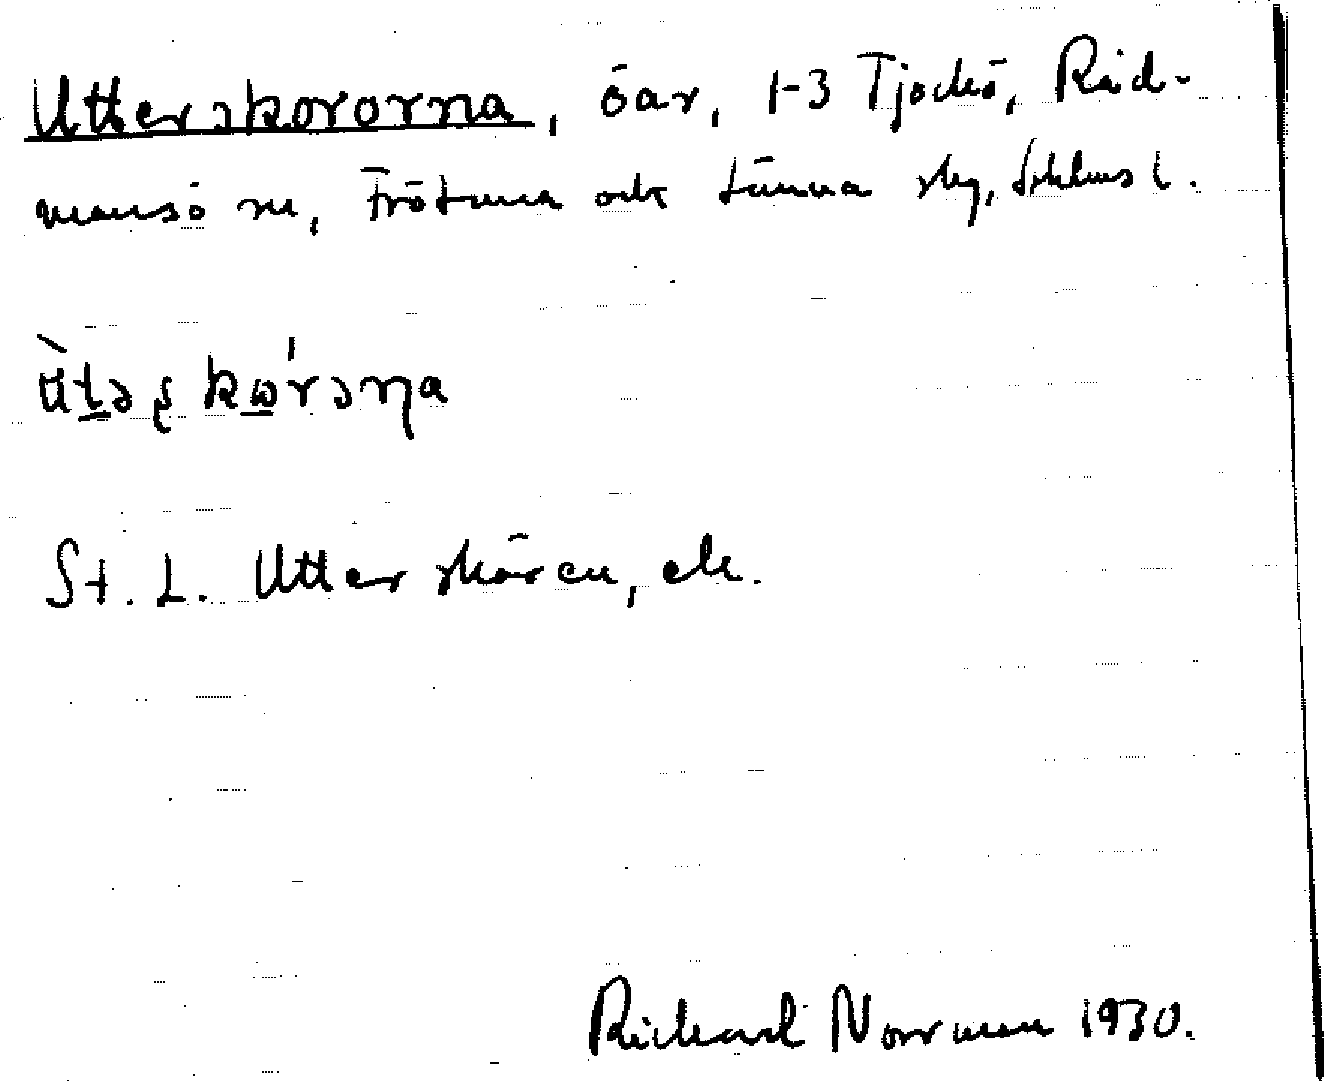 Utterskororna, öar, 1-3 Tjockö, Råd-
mansö sn, Frötuna och Länna skg, Sthlms l.
ù̈təʂkω'rəɳa
St. L. Utterskären, ek.
Richard Norrman 1930.